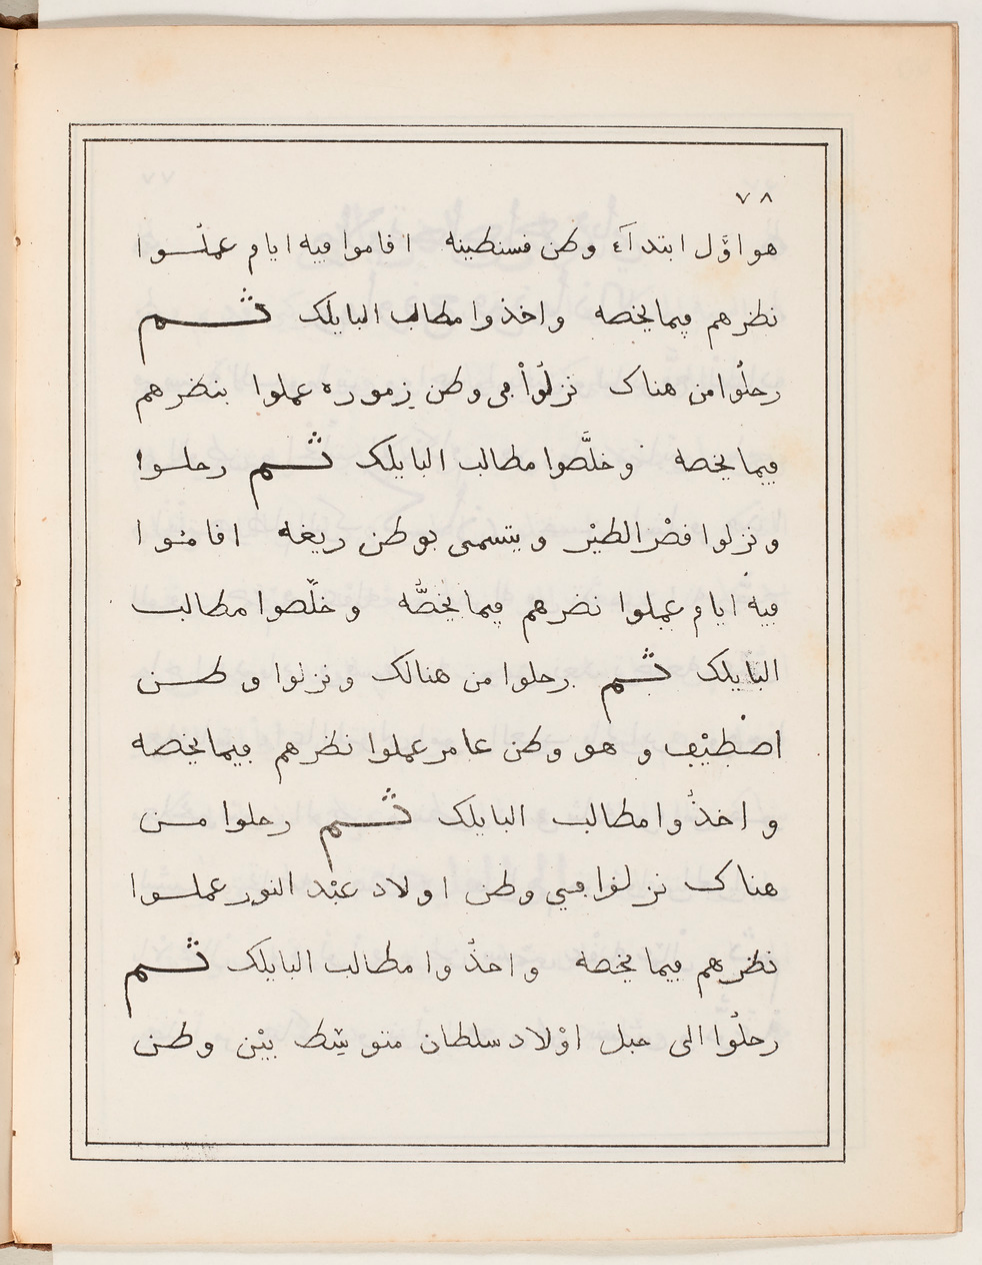 ٧٨
هو اوَّل ابتدآء وطن فسنطينه افاموا فيه ايام عملُوا
نظرهم فيما يخصه واخذوا مطالب البايلك ثم
رحلُوا من هناك نزلُواْ في وطن زموره عملوا بنضرهم
فيما يخصه وخلَّصوا مطالب البايلك ثم رحلوا
ونزلوا فصْر الطيْر ويتسمى بوطن ريغه افاموا
فيه ايام عملوا نضرهم فيما يخصُّه وخلّصوا مطالب
البايلك ثم رحلوا من هنالك ونزلوا وطن
اصْطيْف وهو وطن عامر عملوا نظرهم فيما يخصه
واخذُوا مطالب البايلك ثم رحلوا من
هناك نزلوا في وطن اولاد عبْد النور عملوا
نظرهم فيما يخصه واخذُوا مطالب البايلك ثم
رحلُوا الى جبل اوْلاد سلطان متوسّط بيْن وطن